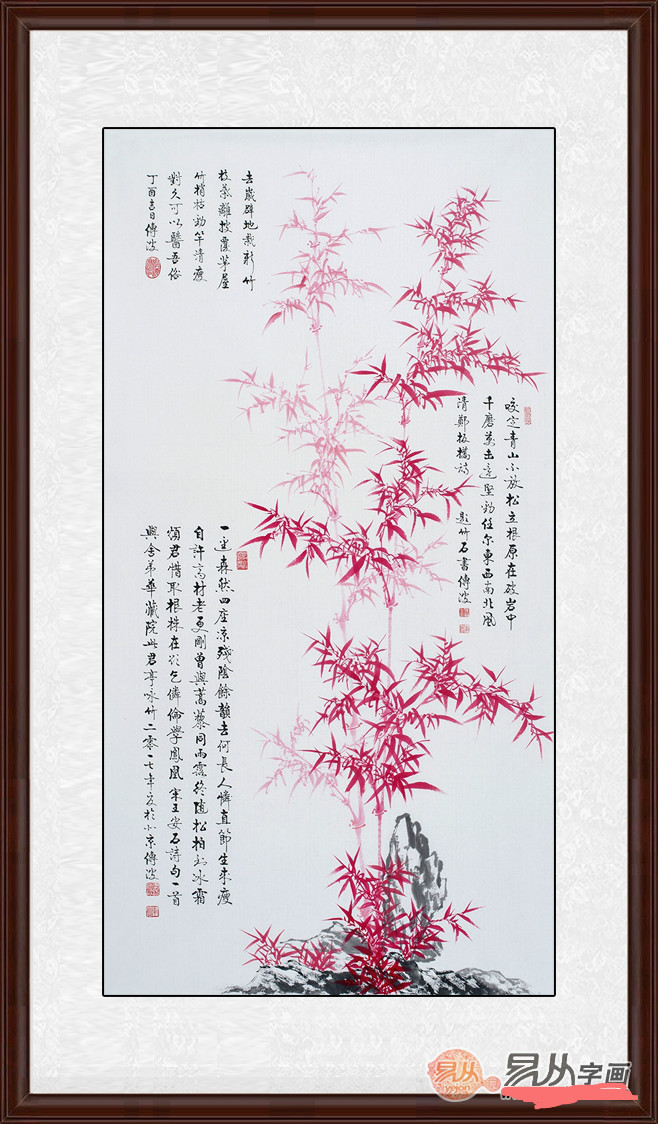 去歲辟地栽新竹
枝葉離披覆茅屋
竹梢枯勁竿清瘦
對久可以醫吾俗
丁酉吉日傳波
咬定青山不放松立根原在破岩中
千磨萬击還堅勁任尔東西南北風
清鄭板橋詩 題竹石書傳波
一迳森然四座凉殘陰餘韻去何長人憐直節生來瘦
自許高材老更剛曾與蒿藜同雨露終随松柏到冰霜
煩君惜取根株在欲乞伶倫學鳳凰宋王安石詩句一首
與舍弟華藏院此君亭咏竹二零一七年夏於北京傳波
易从
yejon
易从字画